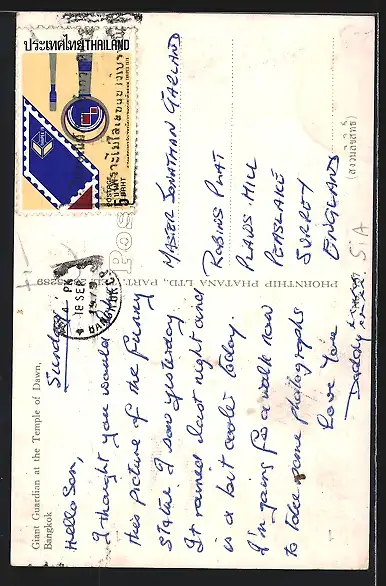 Giant Guardian at the Temple of Dawn,
Bangkok
Sunday
Hello Son,
I thought you would like
this picture of the funny
statue I saw yesterday.
It rained last night and
is a bit cooler today.
I'm going for a walk now
to take some photographs
Love You
Daddy
PHORNTHIP PHATANA LTD., PART.
Post
ประเทศไทย THAILAND
POSTAGE
5 BAHT
PM
18 SEP
1973
BANGKOK
MASTER JONATHAN GARLAND
ROBINS PLAT
PLAWS HILL
PEASLAKE
SURREY
ENGLAND
(สงวนลิขสิทธิ์)
S/A